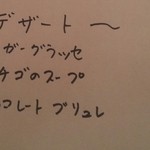 デザート 〜
ガーグラッセ
チゴのスープ
コレート ブリュレ